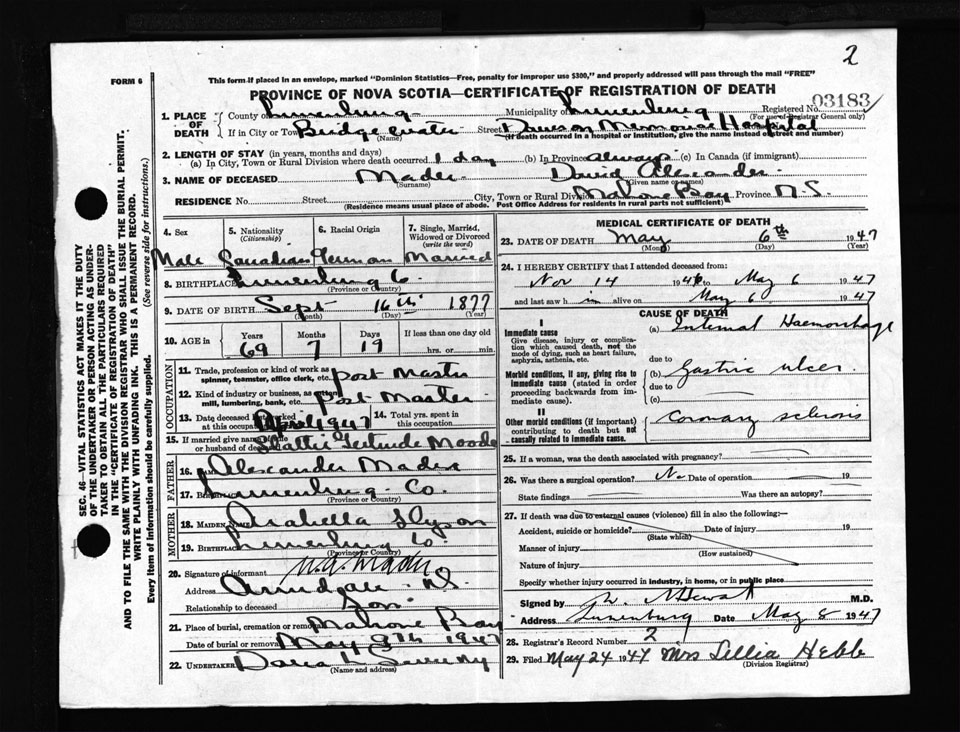 2
This form if placed in an envelope, marked "Dominion Statistics—Free, penalty for improper use $300," and properly addressed will pass through the mail "FREE"
FORM 6
PROVINCE OF NOVA SCOTIA—CERTIFICATE OF REGISTRATION OF DEATH
1. PLACE OF DEATH
County of Lunenburg Municipality of Lunenburg Registered No. 03183
(For use of Registrar General only)
If in City or Town Bridgewater Street Dawson Memorial Hospital
(Name) (If death occurred in a hospital or institution, give the name instead of street and number)
2. LENGTH OF STAY (in years, months and days)
(a) In City, Town or Rural Division where death occurred 1 day (b) In Province always (c) In Canada (if immigrant)
3. NAME OF DECEASED Mader David Alexander
(Surname) (Given name or names)
RESIDENCE No. Street City, Town or Rural Division Mahone Bay Province N.S.
(Residence means usual place of abode. Post Office Address for residents in rural parts not sufficient)
4. Sex 5. Nationality (Citizenship) 6. Racial Origin 7. Single, Married, Widowed or Divorced (write the word)
Male Canadian German Married
8. BIRTHPLACE Lunenburg Co
(Province or Country)
9. DATE OF BIRTH Sept 16th 1877
(Month) (Day) (Year)
10. AGE in Years Months Days If less than one day old
69 7 19 hrs. or min.
OCCUPATION
11. Trade, profession or kind of work as spinner, teamster, office clerk, etc. Post Master
12. Kind of industry or business, as cotton mill, lumbering, bank, etc. Post Master
13. Date deceased last worked at this occupation April 1947 14. Total yrs. spent in this occupation
15. If married give name of wife or husband of deceased Gertrude
FATHER
16. Name Alexander Mader
17. Birthplace Lunenburg Co.
(Province or Country)
MOTHER
18. MAIDEN NAME Arabella
19. BIRTHPLACE Lunenburg Co.
(Province or Country)
20. Signature of informant Mader
Address N.S.
Relationship to deceased Son
21. Place of burial, cremation or removal Mahone Bay
Date of burial or removal May 9th 1947
22. UNDERTAKER
(Name and address)
MEDICAL CERTIFICATE OF DEATH
23. DATE OF DEATH May 6th 1947
(Month) (Day) (Year)
24. I HEREBY CERTIFY that I attended deceased from:
Nov 14 1946 to May 6 1947
and last saw him alive on May 6 1947
CAUSE OF DEATH
I
Immediate cause
Give disease, injury or complication which caused death, not the mode of dying, such as heart failure, asphyxia, asthenia, etc.
(a) Internal Haemorrhage
due to
Morbid conditions, if any, giving rise to immediate cause (stated in order proceeding backwards from immediate cause).
(b) Gastric ulcer
due to
(c)
II
Other morbid conditions (if important) contributing to death but not causally related to immediate cause.
Coronary sclerosis
25. If a woman, was the death associated with pregnancy?
26. Was there a surgical operation? No Date of operation 19
State findings Was there an autopsy?
27. If death was due to external causes (violence) fill in also the following:—
Accident, suicide or homicide? Date of injury 19
(State which)
Manner of injury
(How sustained)
Nature of injury
Specify whether injury occurred in industry, in home, or in public place
Signed by M.D.
Lunenburg Date May 8 1947
28. Registrar's Record Number 2
29. Filed May 24 1947 Mrs Lillia Hebb
(Division Registrar)
SEC. 46—VITAL STATISTICS ACT MAKES IT THE DUTY
OF THE UNDERTAKER OR PERSON ACTING AS UNDER-
TAKER TO OBTAIN ALL THE PARTICULARS REQUIRED
IN THE "CERTIFICATE OF REGISTRATION OF DEATH"
AND TO FILE THE SAME WITH THE DIVISION REGISTRAR WHO SHALL ISSUE THE BURIAL PERMIT.
WRITE PLAINLY WITH UNFADING INK. THIS IS A PERMANENT RECORD.
Every item of Information should be carefully supplied. (See reverse side for instructions.)